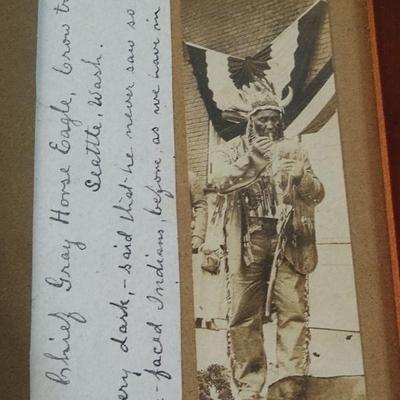 Chief Gray Horse Eagle, Crow
Seattle, Wash.
dark, - said that he never saw so
faced Indians before, as we have in